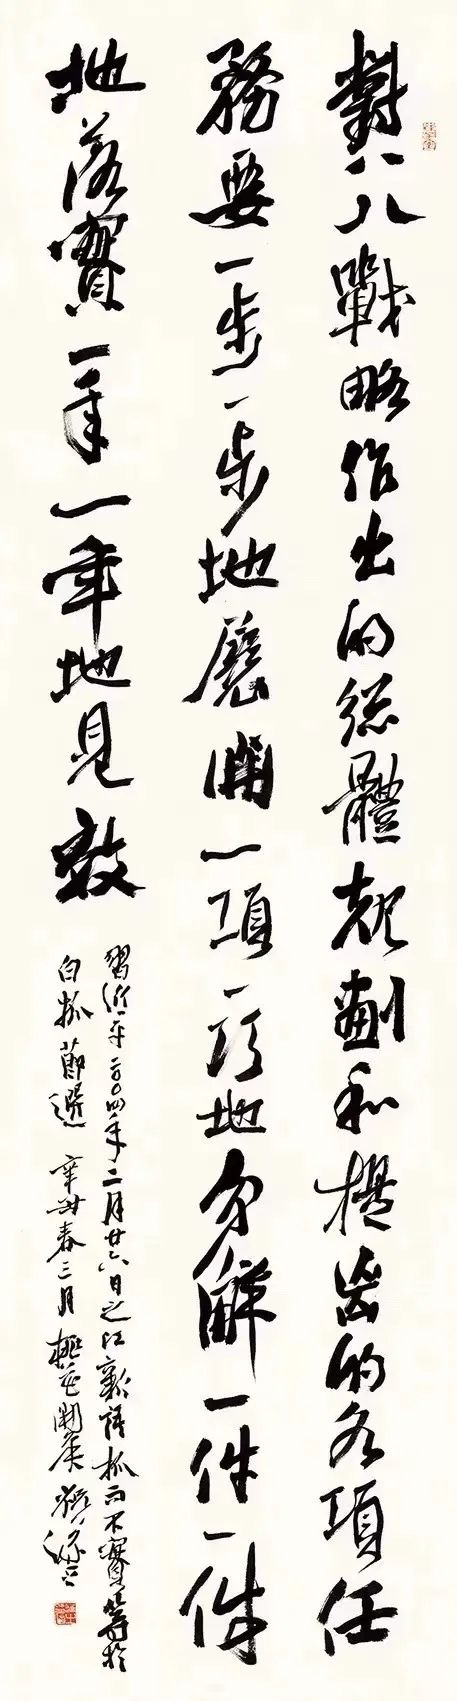 對八八戰略作出的總體規劃和提出的各項任
務要一步一步地展開一項一項地分解一件一件
地落實一年一年地見效
習近平二〇〇四年二月廿六日之江新語抓而不實等於
白抓節選 辛丑春三月桃花開